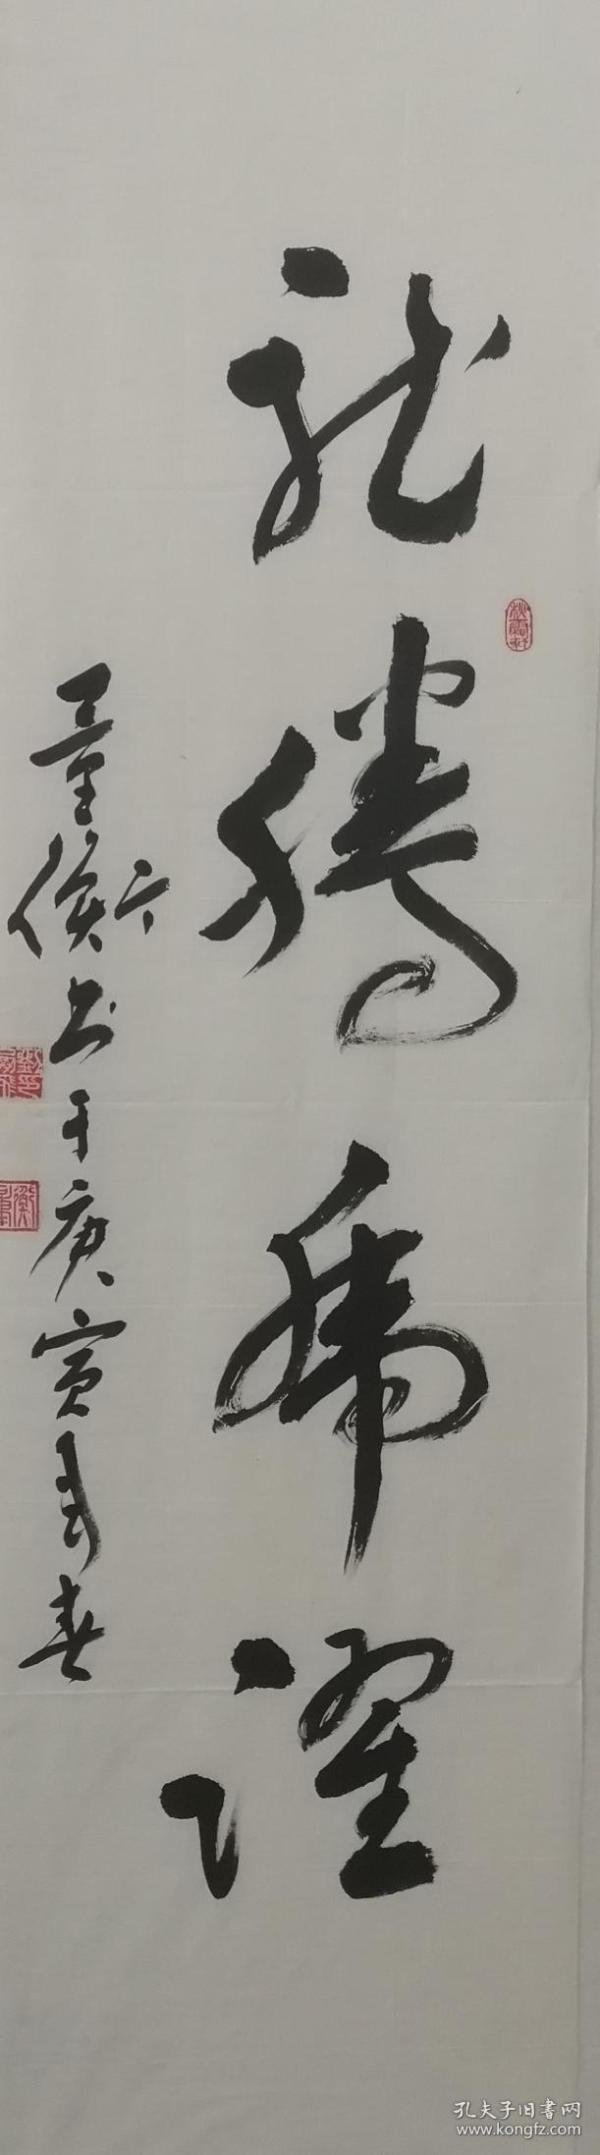 龍騰虎躍
量衡书于庚寅年春
孔夫子旧書网
www.kongfz.com